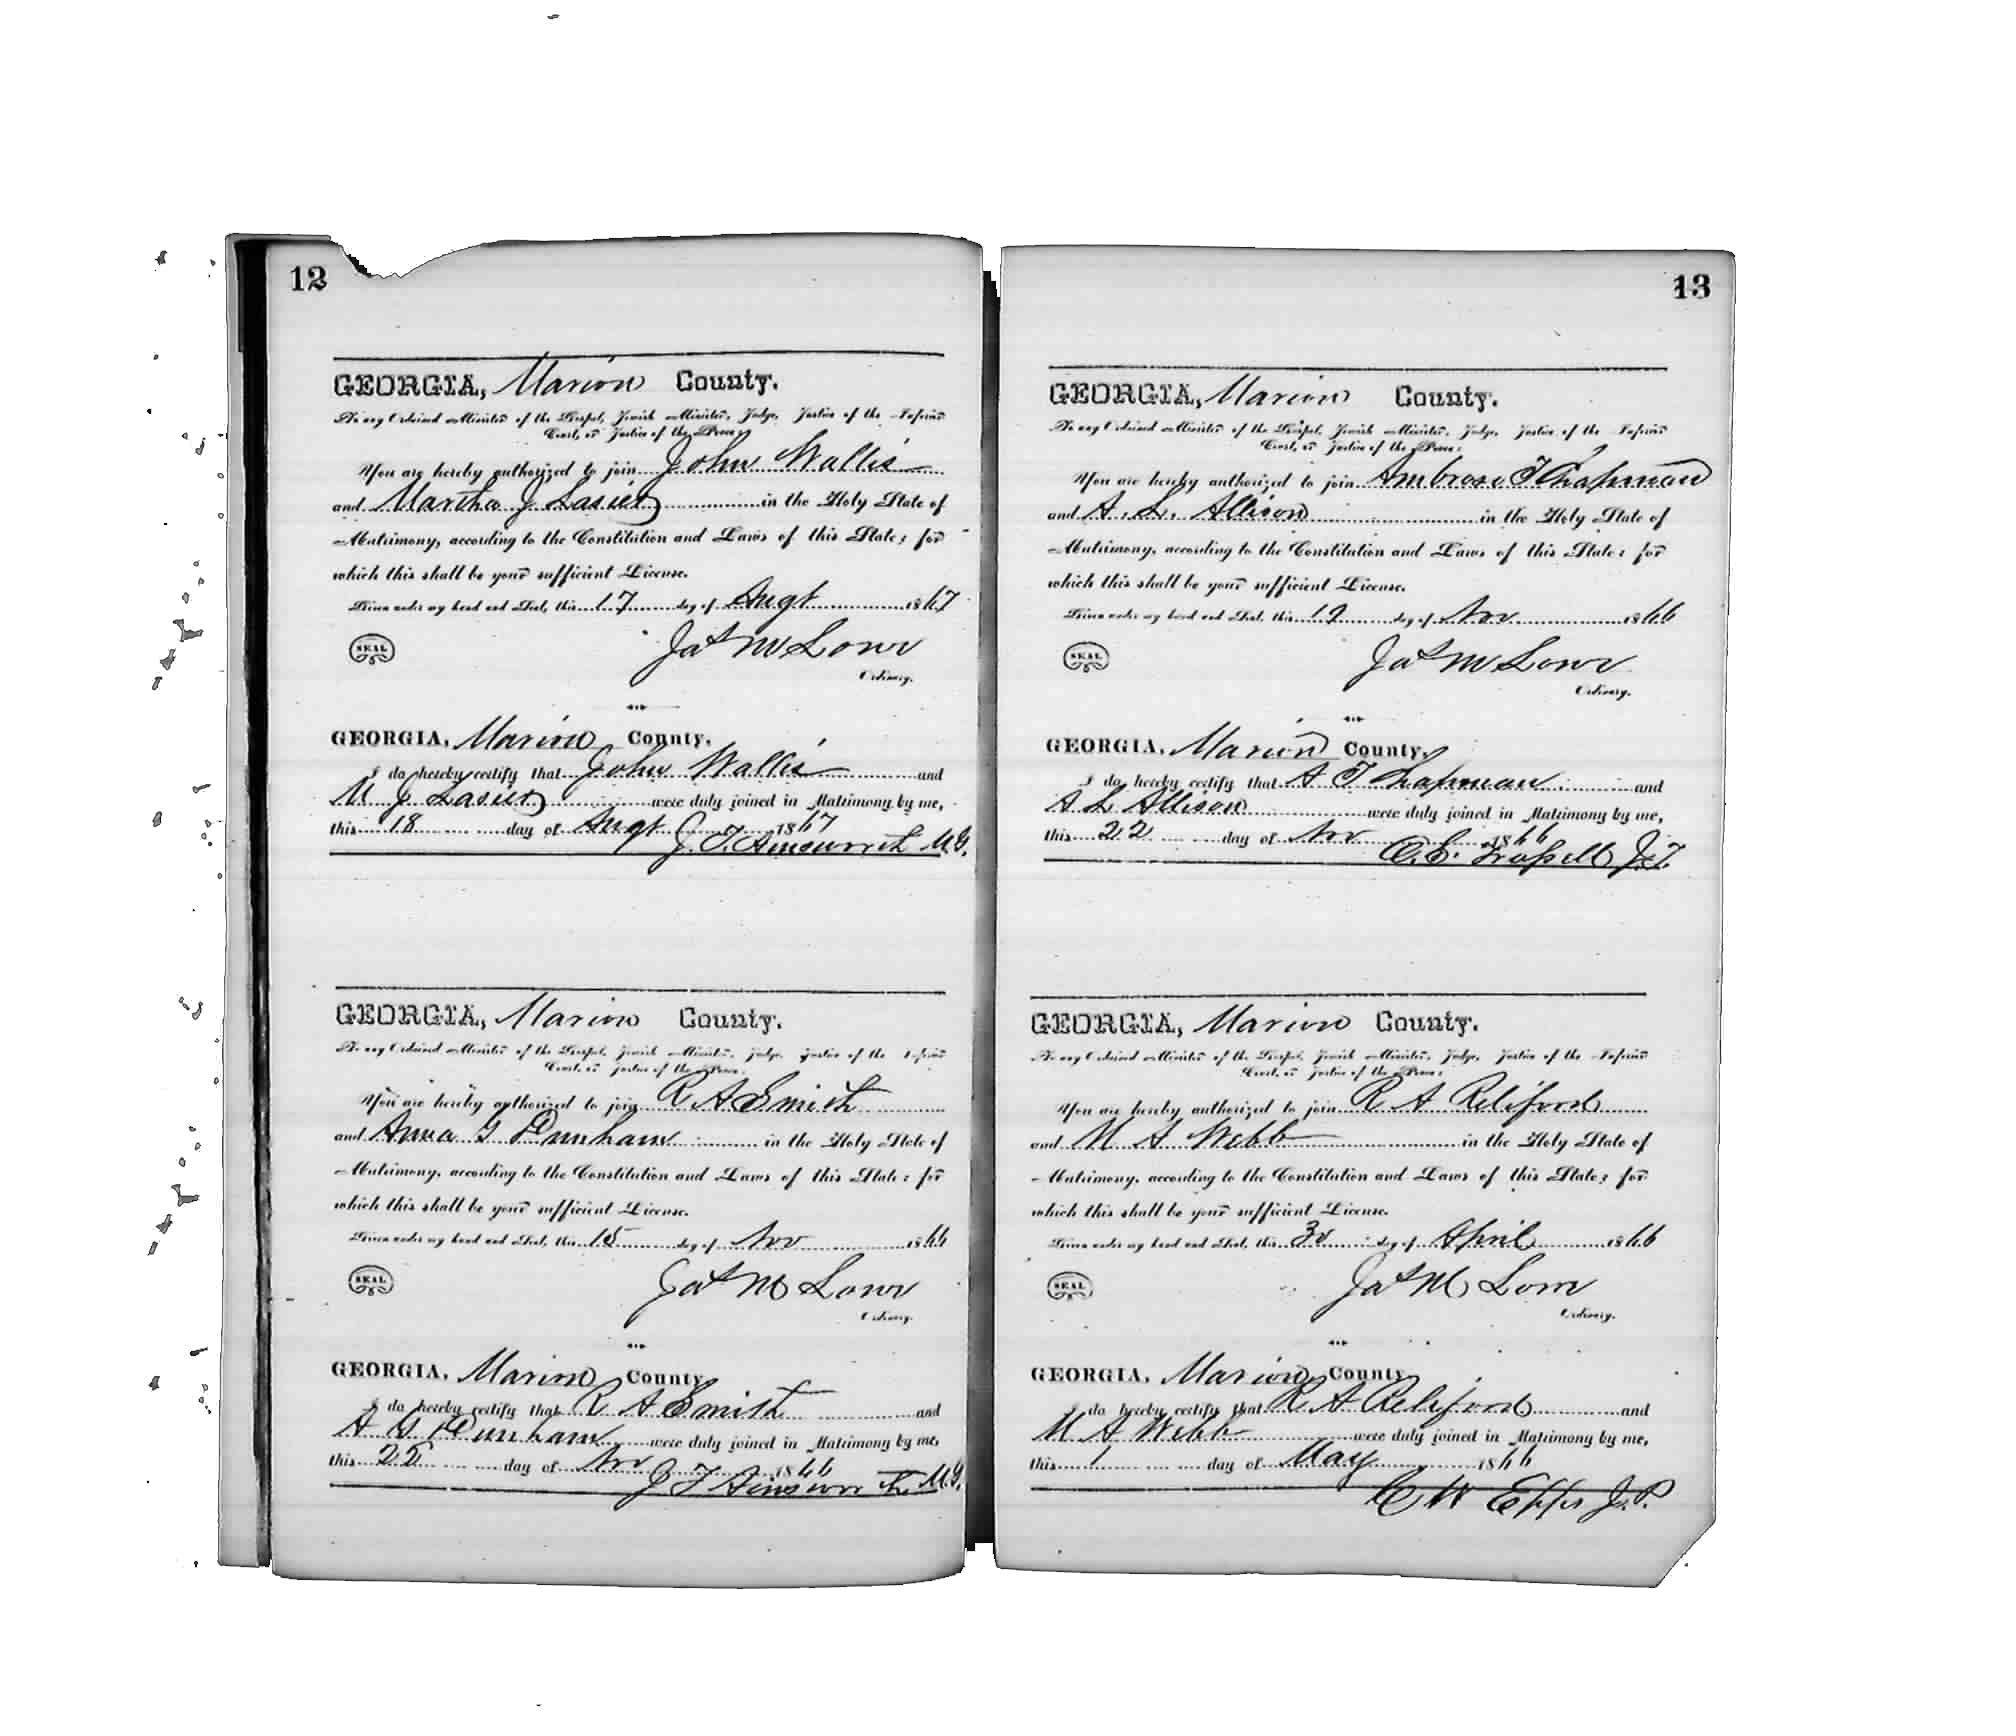 12
GEORGIA, Marion County.
To any Ordained Minister of the Gospel, Jewish Minister, Judge, Justice of the Inferior
Court, or Justice of the Peace:
You are hereby authorized to join John Wallis
and Martha J Lasiter in the Holy State of
Matrimony, according to the Constitution and Laws of this State; for
which this shall be your sufficient License.
Given under my hand and Seal, this 17 day of Augt 1867
SEAL
Jas M Lowr
Ordinary.
GEORGIA, Marion County.
I do hereby certify that John Wallis and
M J Lasiter were duly joined in Matrimony by me,
this 18 day of Augt 1867
J. T. Ainsworth M.G.
GEORGIA, Marion County.
To any Ordained Minister of the Gospel, Jewish Minister, Judge, Justice of the Inferior
Court, or Justice of the Peace:
You are hereby authorized to join R A Smith
and Anna G Dunham in the Holy State of
Matrimony, according to the Constitution and Laws of this State; for
which this shall be your sufficient License.
Given under my hand and Seal, this 15 day of Nov 1866
SEAL
Jas M Lowr
Ordinary.
GEORGIA, Marion County
I do hereby certify that R A Smith and
A G Dunham were duly joined in Matrimony by me,
this 22 day of Nov 1866
J T Ainsworth M.G.
13
GEORGIA, Marion County.
To any Ordained Minister of the Gospel, Jewish Minister, Judge, Justice of the Inferior
Court, or Justice of the Peace:
You are hereby authorized to join Ambrose T Chapman
and A. L. Allison in the Holy State of
Matrimony, according to the Constitution and Laws of this State; for
which this shall be your sufficient License.
Given under my hand and Seal, this 19 day of Nov 1866
SEAL
Jas M Lowr
Ordinary.
GEORGIA, Marion County,
I do hereby certify that A T Chapman and
A L Allison were duly joined in Matrimony by me,
this 22 day of Nov 1866
GEORGIA, Marion County.
To any Ordained Minister of the Gospel, Jewish Minister, Judge, Justice of the Inferior
Court, or Justice of the Peace:
You are hereby authorized to join R A Reliford
and M A Webb in the Holy State of
Matrimony, according to the Constitution and Laws of this State; for
which this shall be your sufficient License.
Given under my hand and Seal, this 30 day of April 1866
SEAL
Jas M Lowr
Ordinary.
GEORGIA, Marion County
I do hereby certify that R A Reliford and
M A Webb were duly joined in Matrimony by me,
this 1 day of May 1866
C W Epps J.P.